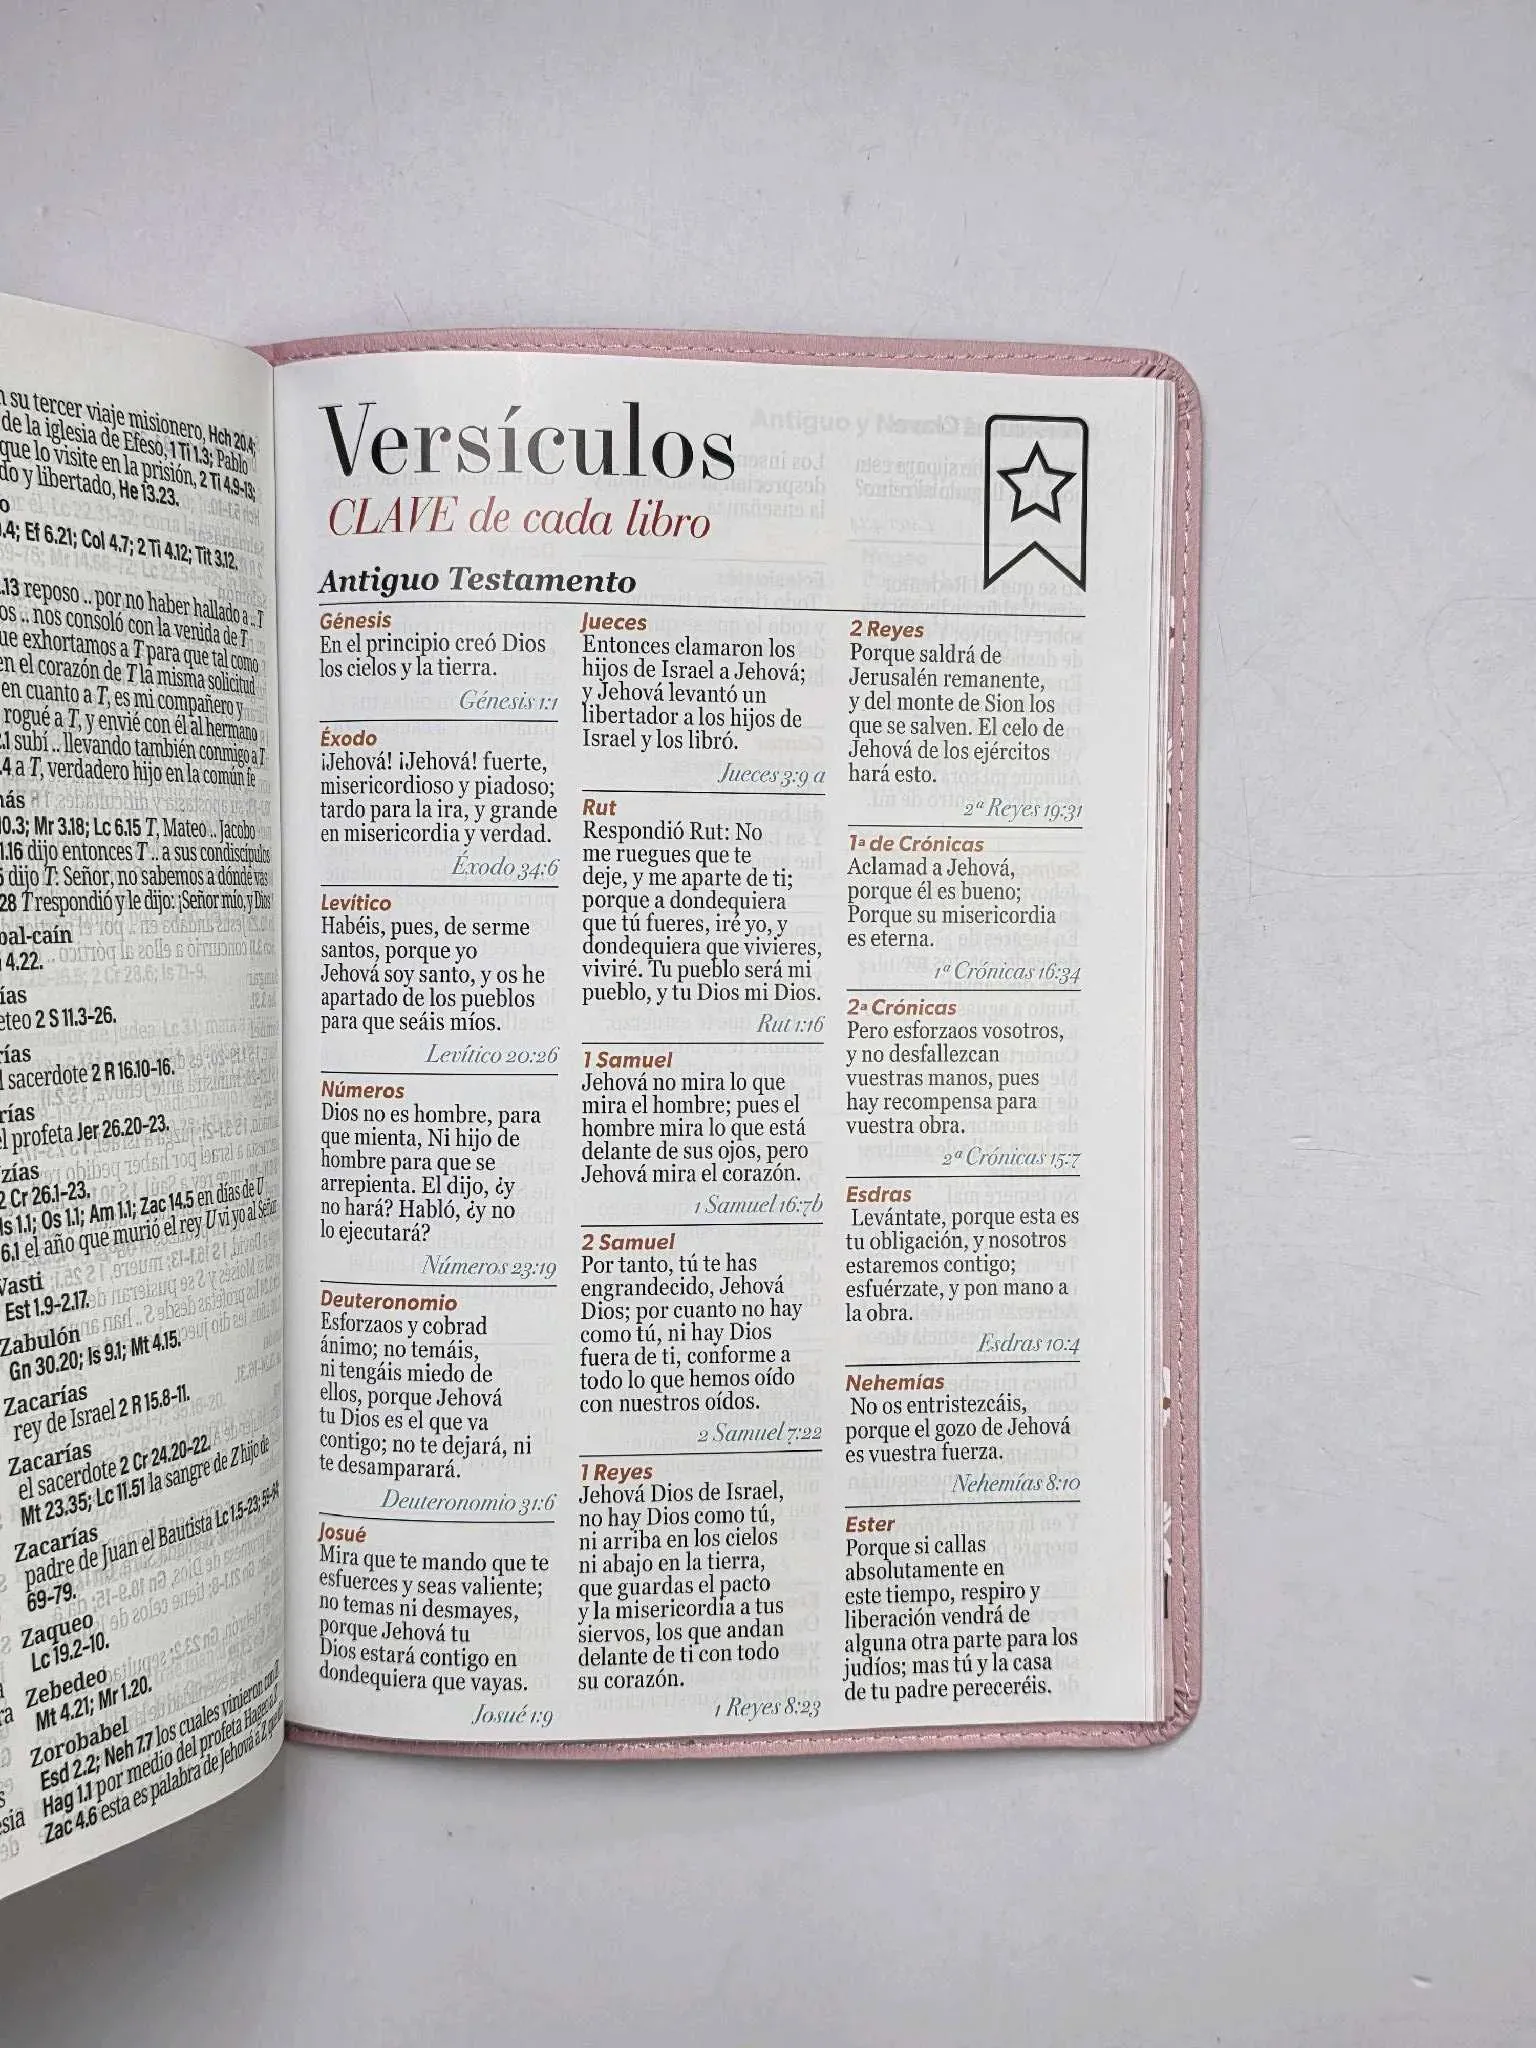 n su tercer viaje misionero, Hch 20.4;
de la iglesia de Efeso, 1 Ti 1.3; Pablo
que lo visite en la prisión, 2 Ti 4.9-13;
do y libertado, He 13.23.
0.4; Ef 6.21; Col 4.7; 2 Ti 4.12; Tit 3.12.
.13 reposo .. por no haber hallado a .. T
os .. nos consoló con la venida de T
ue exhortamos a T para que tal como
en el corazón de T la misma solicitud
en cuanto a T, es mi compañero y
rogué a T, y envié con él al hermano
2.1 subí .. llevando también conmigo a T
.4 a T, verdadero hijo en la común fe
ás
10.3; Mr 3.18; Lc 6.15 T, Mateo .. Jacobo
1.16 dijo entonces T .. a sus condiscípulos
dijo T: Señor, no sabemos a dónde vas
28 T respondió y le dijo: ¡Señor mío, y Dios
bal-caín
4.22.
ías
eteo 2 S 11.3-26.
rías
l sacerdote 2 R 16.10-16.
rías
el profeta Jer 26.20-23.
zías
2 Cr 26.1-23.
Is 1.1; Os 1.1; Am 1.1; Zac 14.5 en días de U
6.1 el año que murió el rey U vi yo al Señor
Vasti
Est 1.9-2.17.
Zabulón
Gn 30.20; Is 9.1; Mt 4.15.
Zacarías
rey de Israel 2 R 15.8-11.
Zacarías
el sacerdote 2 Cr 24.20-22.
Mt 23.35; Lc 11.51 la sangre de Z hijo de
Zacarías
padre de Juan el Bautista Lc 1.5-23; 59-64
69-79.
Zaqueo
Lc 19.2-10.
Zebedeo
Mt 4.21; Mr 1.20.
Zorobabel
Esd 2.2; Neh 7.7 los cuales vinieron con
Hag 1.1 por medio del profeta Hageo a
Zac 4.6 esta es palabra de Jehová á Z, que
Versículos
CLAVE de cada libro
Antiguo Testamento
Génesis
En el principio creó Dios
los cielos y la tierra.
Génesis 1:1
Éxodo
¡Jehová! ¡Jehová! fuerte,
misericordioso y piadoso;
tardo para la ira, y grande
en misericordia y verdad.
Éxodo 34:6
Levítico
Habéis, pues, de serme
santos, porque yo
Jehová soy santo, y os he
apartado de los pueblos
para que seáis míos.
Levítico 20:26
Números
Dios no es hombre, para
que mienta, Ni hijo de
hombre para que se
arrepienta. El dijo, ¿y
no hará? Habló, ¿y no
lo ejecutará?
Números 23:19
Deuteronomio
Esforzaos y cobrad
ánimo; no temáis,
ni tengáis miedo de
ellos, porque Jehová
tu Dios es el que va
contigo; no te dejará, ni
te desamparará.
Deuteronomio 31:6
Josué
Mira que te mando que te
esfuerces y seas valiente;
no temas ni desmayes,
porque Jehová tu
Dios estará contigo en
dondequiera que vayas.
Josué 1:9
Jueces
Entonces clamaron los
hijos de Israel a Jehová;
y Jehová levantó un
libertador a los hijos de
Israel y los libró.
Jueces 3:9 a
Rut
Respondió Rut: No
me ruegues que te
deje, y me aparte de ti;
porque a dondequiera
que tú fueres, iré yo, y
dondequiera que vivieres,
viviré. Tu pueblo será mi
pueblo, y tu Dios mi Dios.
Rut 1:16
1 Samuel
Jehová no mira lo que
mira el hombre; pues el
hombre mira lo que está
delante de sus ojos, pero
Jehová mira el corazón.
1 Samuel 16:7b
2 Samuel
Por tanto, tú te has
engrandecido, Jehová
Dios; por cuanto no hay
como tú, ni hay Dios
fuera de ti, conforme a
todo lo que hemos oído
con nuestros oídos.
2 Samuel 7:22
1 Reyes
Jehová Dios de Israel,
no hay Dios como tú,
ni arriba en los cielos
ni abajo en la tierra,
que guardas el pacto
y la misericordia a tus
siervos, los que andan
delante de ti con todo
su corazón.
1 Reyes 8:23
2 Reyes
Porque saldrá de
Jerusalén remanente,
y del monte de Sion los
que se salven. El celo de
Jehová de los ejércitos
hará esto.
2ª Reyes 19:31
1ª de Crónicas
Aclamad a Jehová,
porque él es bueno;
Porque su misericordia
es eterna.
1ª Crónicas 16:34
2ª Crónicas
Pero esforzaos vosotros,
y no desfallezcan
vuestras manos, pues
hay recompensa para
vuestra obra.
2ª Crónicas 15:7
Esdras
Levántate, porque esta es
tu obligación, y nosotros
estaremos contigo;
esfuérzate, y pon mano a
la obra.
Esdras 10:4
Nehemías
No os entristezcáis,
porque el gozo de Jehová
es vuestra fuerza.
Nehemías 8:10
Ester
Porque si callas
absolutamente en
este tiempo, respiro y
liberación vendrá de
alguna otra parte para los
judíos; mas tú y la casa
de tu padre pereceréis.